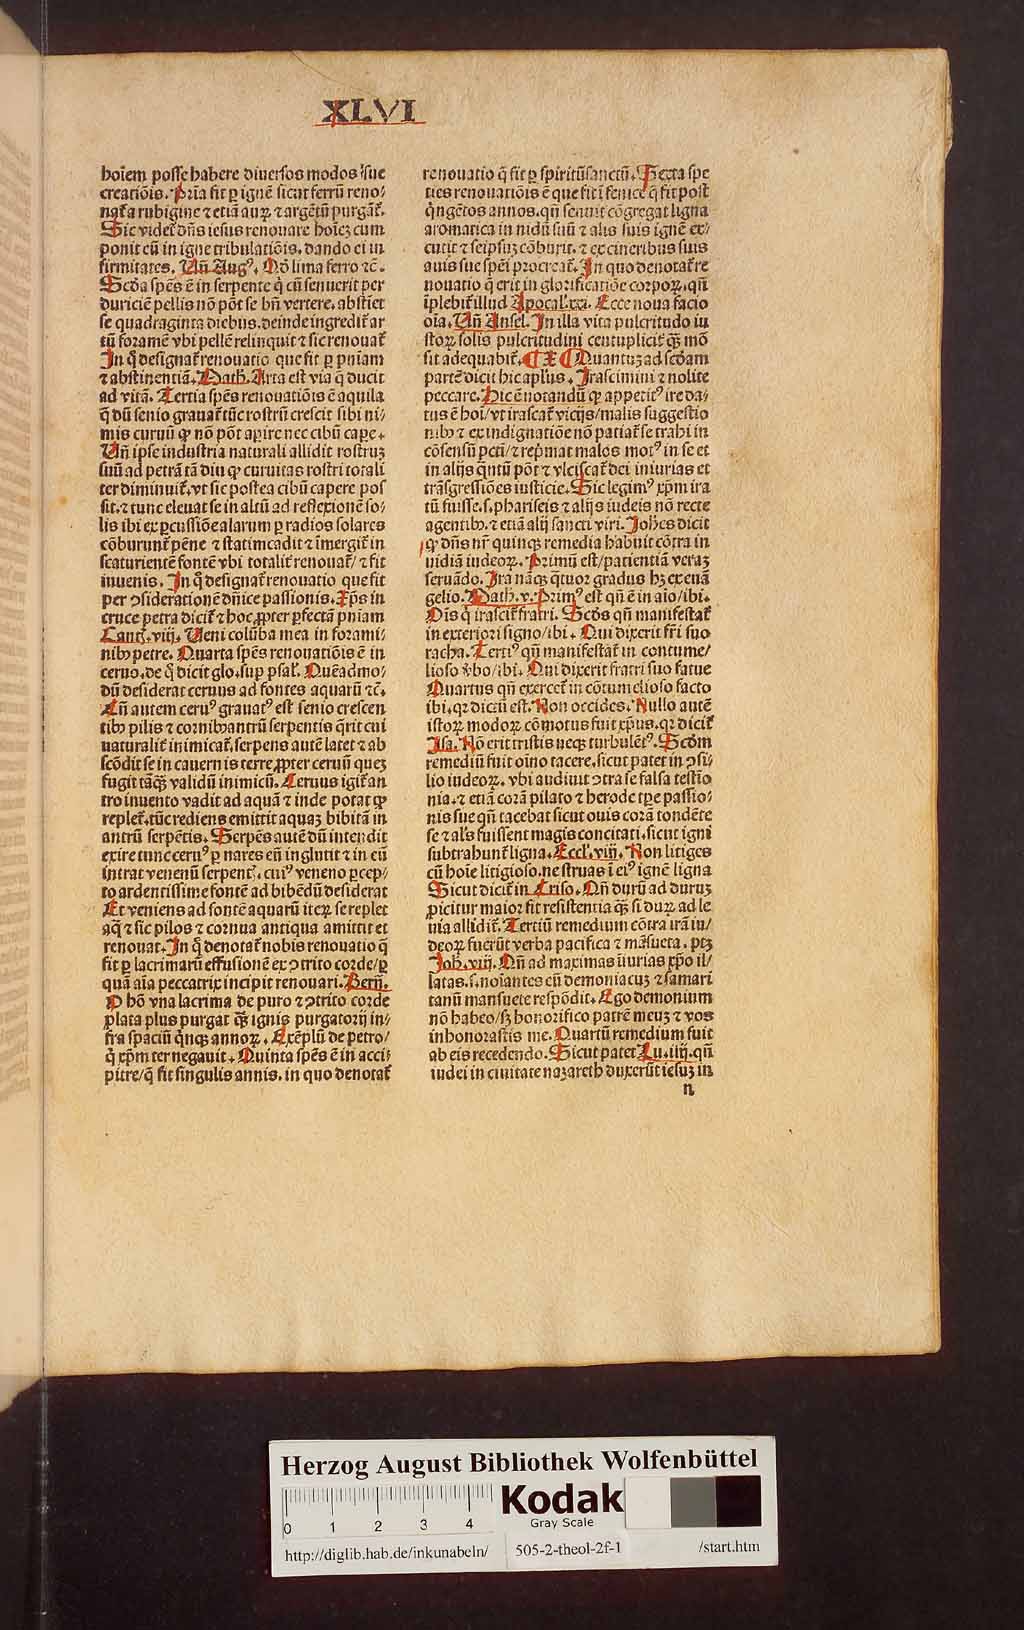 XLVI
hoīem posse habere diuersos modos sue
creatiōis. Pria fit ꝑ ignē sicut ferrū reno/
nat̄ a rubigine ⁊ etiā auꝝ ⁊ argētū purgat̄.
Sic videt̄ dn̄s iesus renouare hoīeꝫ cum
ponit eū in igne tribulatiōis. dando ei in
firmitates. Un̄ Augꝰ. Qd̄ lima ferro ⁊c̄.
Scd̄a spēs ē in serpente q̇ cū senuerit per
duriciē pellis nō pōt se bn̄ vertere. abstiēt
se quadraginta diebus. deinde ingredit̄ ar
tū foramē vbi pellē relinquit ⁊ sic renouat̄
In q̇ designat̄ renouatio que fit ꝑ pn̄iam
⁊ abstinentiā. Math. Arta est via q̄ ducit
ad vitā. Tertia spēs renouatiōis ē aquila
q̄ dū senio grauat̄ tūc rostrū crescit sibi ni/
mis curuū ꝙ nō pōt aperire nec cibū cape.
Un̄ ipse industria naturali allidit rostruꝫ
suū ad petrā tā diu ꝙ curuitas rostri totali
ter diminuit̄. vt sic postea cibū capere pos
sit. ⁊ tunc eleuat se in altū ad reflexionē so/
lis ibi ex ꝑcussiōe alarum ꝑ radios solares
cōburunt̄ pēne ⁊ statim cadit ⁊ īmergit̄ in
scaturientē fontē vbi totalit̄ renouat̄/ ⁊ fit
inuenis. In q̇ designat̄ renouatio que fit
per ꝯsiderationē dn̄ice passionis. Xp̄s in
cruce petra dicit̄ ⁊ hoc ꝓpter ꝑfectā pn̄iam
Cant̄. viij. Ueni colūba mea in forami/
nibꝰ petre. Quarta spēs renouatiōis ē in
ceruo. de q̇ dicit glo. sup psal̄. Quēadmo/
dū desiderat ceruus ad fontes aquarū ⁊c̄.
Cū autem ceruꝰ grauatꝰ est senio crescen
tibꝰ pilis ⁊ cornibꝰ antrū serpentis q̄rit cui
naturalit̄ inimicat̄. serpens autē latet ⁊ ab
scōdit se in cauernis terre ꝓpter ceruū queꝫ
fugit tāꝗ̄ validū inimicū. Ceruus igit̄ an
tro inuento vadit ad aquā ⁊ inde potat ꝙ
replet̄. tūc rediens emittit aquaꝫ bibitā in
antrū serpētis. Serpēs autē dū intendit
exire tunc ceruꝰ ꝑ nares eū inglutit ⁊ in eū
intrat venenū serpent̄. cuiꝰ veneno ꝑcep/
to ardentissime fontē ad bibēdū desiderat
Et veniens ad fontē aquarū iteꝝ se replet
aq̄ ⁊ sic pilos ⁊ cornua antiqua amittit et
renouat. In q̇ denotat̄ nobis renouatio q̄
fit ꝑ lacrimarū effusionē ex ꝯtrito corde/ ꝑ
quā aīa peccatrix incipit renouari. Bern̄.
O bō vna lacrima de puro ⁊ ꝯtrito corde
ꝓlata plus purgat ꝗ̄ ignis purgatorij in/
fra spaciū q̇nꝗ annoꝝ. Exēplū de petro/
q̇ xp̄m ter negauit. Quinta spēs ē in acci/
pitre/ q̄ fit singulis annis. in quo denotat̄
renouatio q̄ fit ꝑ spiritūsanctū. Sexta spe
cies renouatiōis ē que fit ī fenice q̄ fit post
q̇ngētos annos. qn̄ senuit cōgregat ligna
aromatica in nidū suū ⁊ alis suis ignē ex/
cutit ⁊ seipsuꝫ cōburit. ⁊ ex cineribus suis
auis sue spēi procreat̄. In quo denotat̄ re
nouatio q̄ erit in glorificatiōe corpoꝝ. qn̄
īplebit̄ illud Apocal. xxi. Ecce noua facio
oīa. Un̄ Ansel. In illa vita pulcritudo iu
stoꝝ solis pulcritudini centuplicit̄ ꝗ̄ mō
sit adequabit̄. ¶ X ¶ Quantuꝫ ad scd̄am
partē dicit hic aplus. Irascimini ⁊ nolite
peccare. Hic ē notandū ꝙ appetitꝰ ire da/
tus ē hoī/ vt irascat̄ vicijs/ malis suggestio
nibꝰ ⁊ ex indignatiōe nō patiat̄ se trahi in
cōsensū pcti/ ⁊ rep̄mat malos motꝰ in se et
in alijs q̄ntū pōt ⁊ vlciscat̄ dei iniurias et
trāsgressiōes iusticie. Sic legimꝰ xp̄m ira
tū fuisse. s. phariseis ⁊ alijs iudeis nō recte
agentibꝰ. ⁊ etiā alij sancti viri. Joh̄es dicit
ꝙ dn̄s nr̄ quinꝗ remedia habuit cōtra in
uidiā iudeoꝝ. Primū est/ patientiā veraꝫ
seruādo. Ira nāꝗ q̄tuor gradus hꝫ ex euā
gelio. Math. v. Primꝰ est qn̄ ē in aīo/ ibi.
Ois q̇ irascit̄ fratri. Scd̄s qn̄ manifestat̄
in exteriori signo/ ibi. Qui dixerit fr̄i suo
racha. Tertiꝰ qn̄ manifestat̄ in contume/
lioso v̄bo/ ibi. Qui dixerit fratri suo fatue
Quartus qn̄ exercet̄ in cōtumelioso facto
ibi. qꝛ dictū est. Non occides. Nullo autē
istoꝝ modoꝝ cōmotus fuit xp̄us. qꝛ dicit̄
Isa. Nō erit tristis neqꝫ turbulētꝰ. Scd̄m
remediū fuit oīno tacere. sicut patet in ꝯsi/
lio iudeoꝝ. vbi audiuit ꝯtra se falsa testīo
nia. ⁊ etiā corā pilato ⁊ herode tp̄e passio/
nis sue qn̄ tacebat sicut ouis corā tondēte
se ⁊ al̄s fuissent magis concitati. sicut igni
subtrahunt̄ ligna. Eccl̄. viij. Non litiges
cū hoīe litigioso. ne struas ī eiꝰ ignē ligna
Sicut dicit̄ in Criso. Qn̄ durū ad duruꝫ
ꝓicitur maior fit resistentia ꝗ̄ si duꝝ ad le
nia allidit̄. Tertiū remedium cōtra irā iu/
deoꝝ fuerūt verba pacifica ⁊ māsueta. ptꝫ
Joh. viij. Qn̄ ad maximas iniurias xp̄o il/
latas. s. noīantes eū demoniacuꝫ ⁊ samari
tanū mansuete respōdit. Ego demonium
nō habeo/ sꝫ honorifico patrē meuꝫ ⁊ vos
inhonorastis me. Quartū remedium fuit
ab eis recedendo. Sicut patet Lu. iiij. qn̄
iudei in ciuitate nazareth duxerūt iesuꝫ in
n
Herzog August Bibliothek Wolfenbüttel
0 1 2 3 4
Kodak
Gray Scale
http://diglib.hab.de/inkunabeln/ 505-2-theol-2f-1 /start.htm